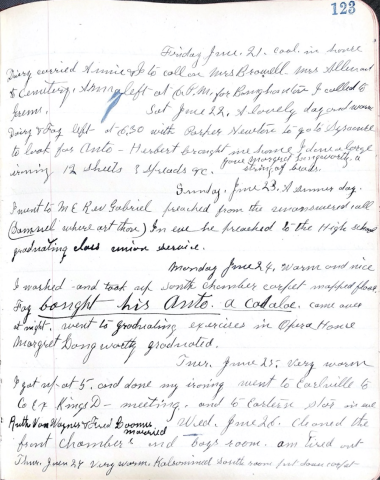 123
Friday June 21. cool. in house
carried Annie & I to call on Mrs Browell. Mrs Allen out
to Cemetery. Anna left at 6 P.M. for Binghamton I called to
Sat June 22, A lovely day and warm
& Fay left at 6.30 with Parker Newton to go to Syracuse
to look for Auto - Herbert brought me home I done a large
gave Margret Longworthy a
ironing 12 sheets 3 spreads &c. string of beads.
Sunday, June 23. A day.
I went to M E Rev Gabriel preached from the unanswered call
( where art thou) In eve he preached to the High school
graduating class union service.
Monday June 24. Warm and nice
I washed - and took up South chamber carpet mopped floor
Fay bought his Auto. a came over
at night. went to graduating exercises in Opera House
Margret Longworthy graduated.
Tues. June 25. Very warm
I got up at 5. and done my ironing went to Earlville to
Co Ex Kings D - meeting. and to Eastern Star in eve
Ruth Van Wagner & Fred married Wed. June 26. Cleaned the
front Chamber and boys room. am tired out
Thur. June 27 Very warm. Kalsomined South room put down carpet